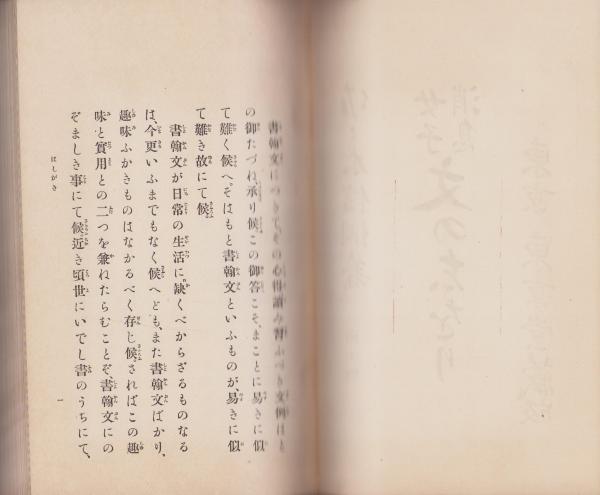 書翰文につきて、その心得讀み習ふべき文例はと
の御たづね、承り候。この御答こそ、まことに易きに似
て難く候へ。そはもと書翰文といふものが、易きに似
て難き故にて候。
書翰文が日常の生活に缺くべからざるものなる
は、今更いふまでもなく候へども、また書翰文ばかり、
趣味ふかきものはなかるべく存じ候。さればこの趣
味と實用との二つを兼ねたらむことぞ、書翰文にの
ぞましき事にて候。近き頃世にいでし書のうちにて、
はしがき
一